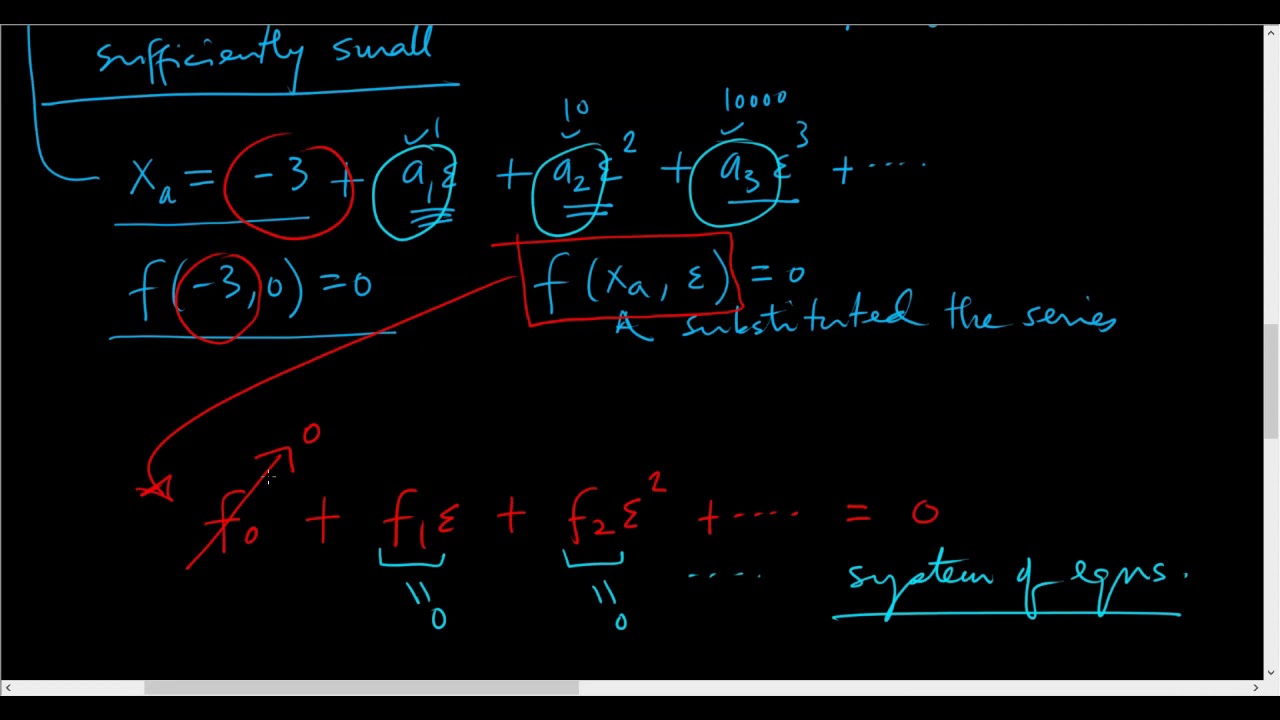 sufficiently small
1 10 10000
xₐ = -3 + a₁ε + a₂ε² + a₃ε³ + ....
f(-3, 0) = 0 f(xₐ, ε) = 0
substituted the series
0
f₀ + f₁ε + f₂ε² + .... = 0
.... system of eqns.
= 0 = 0